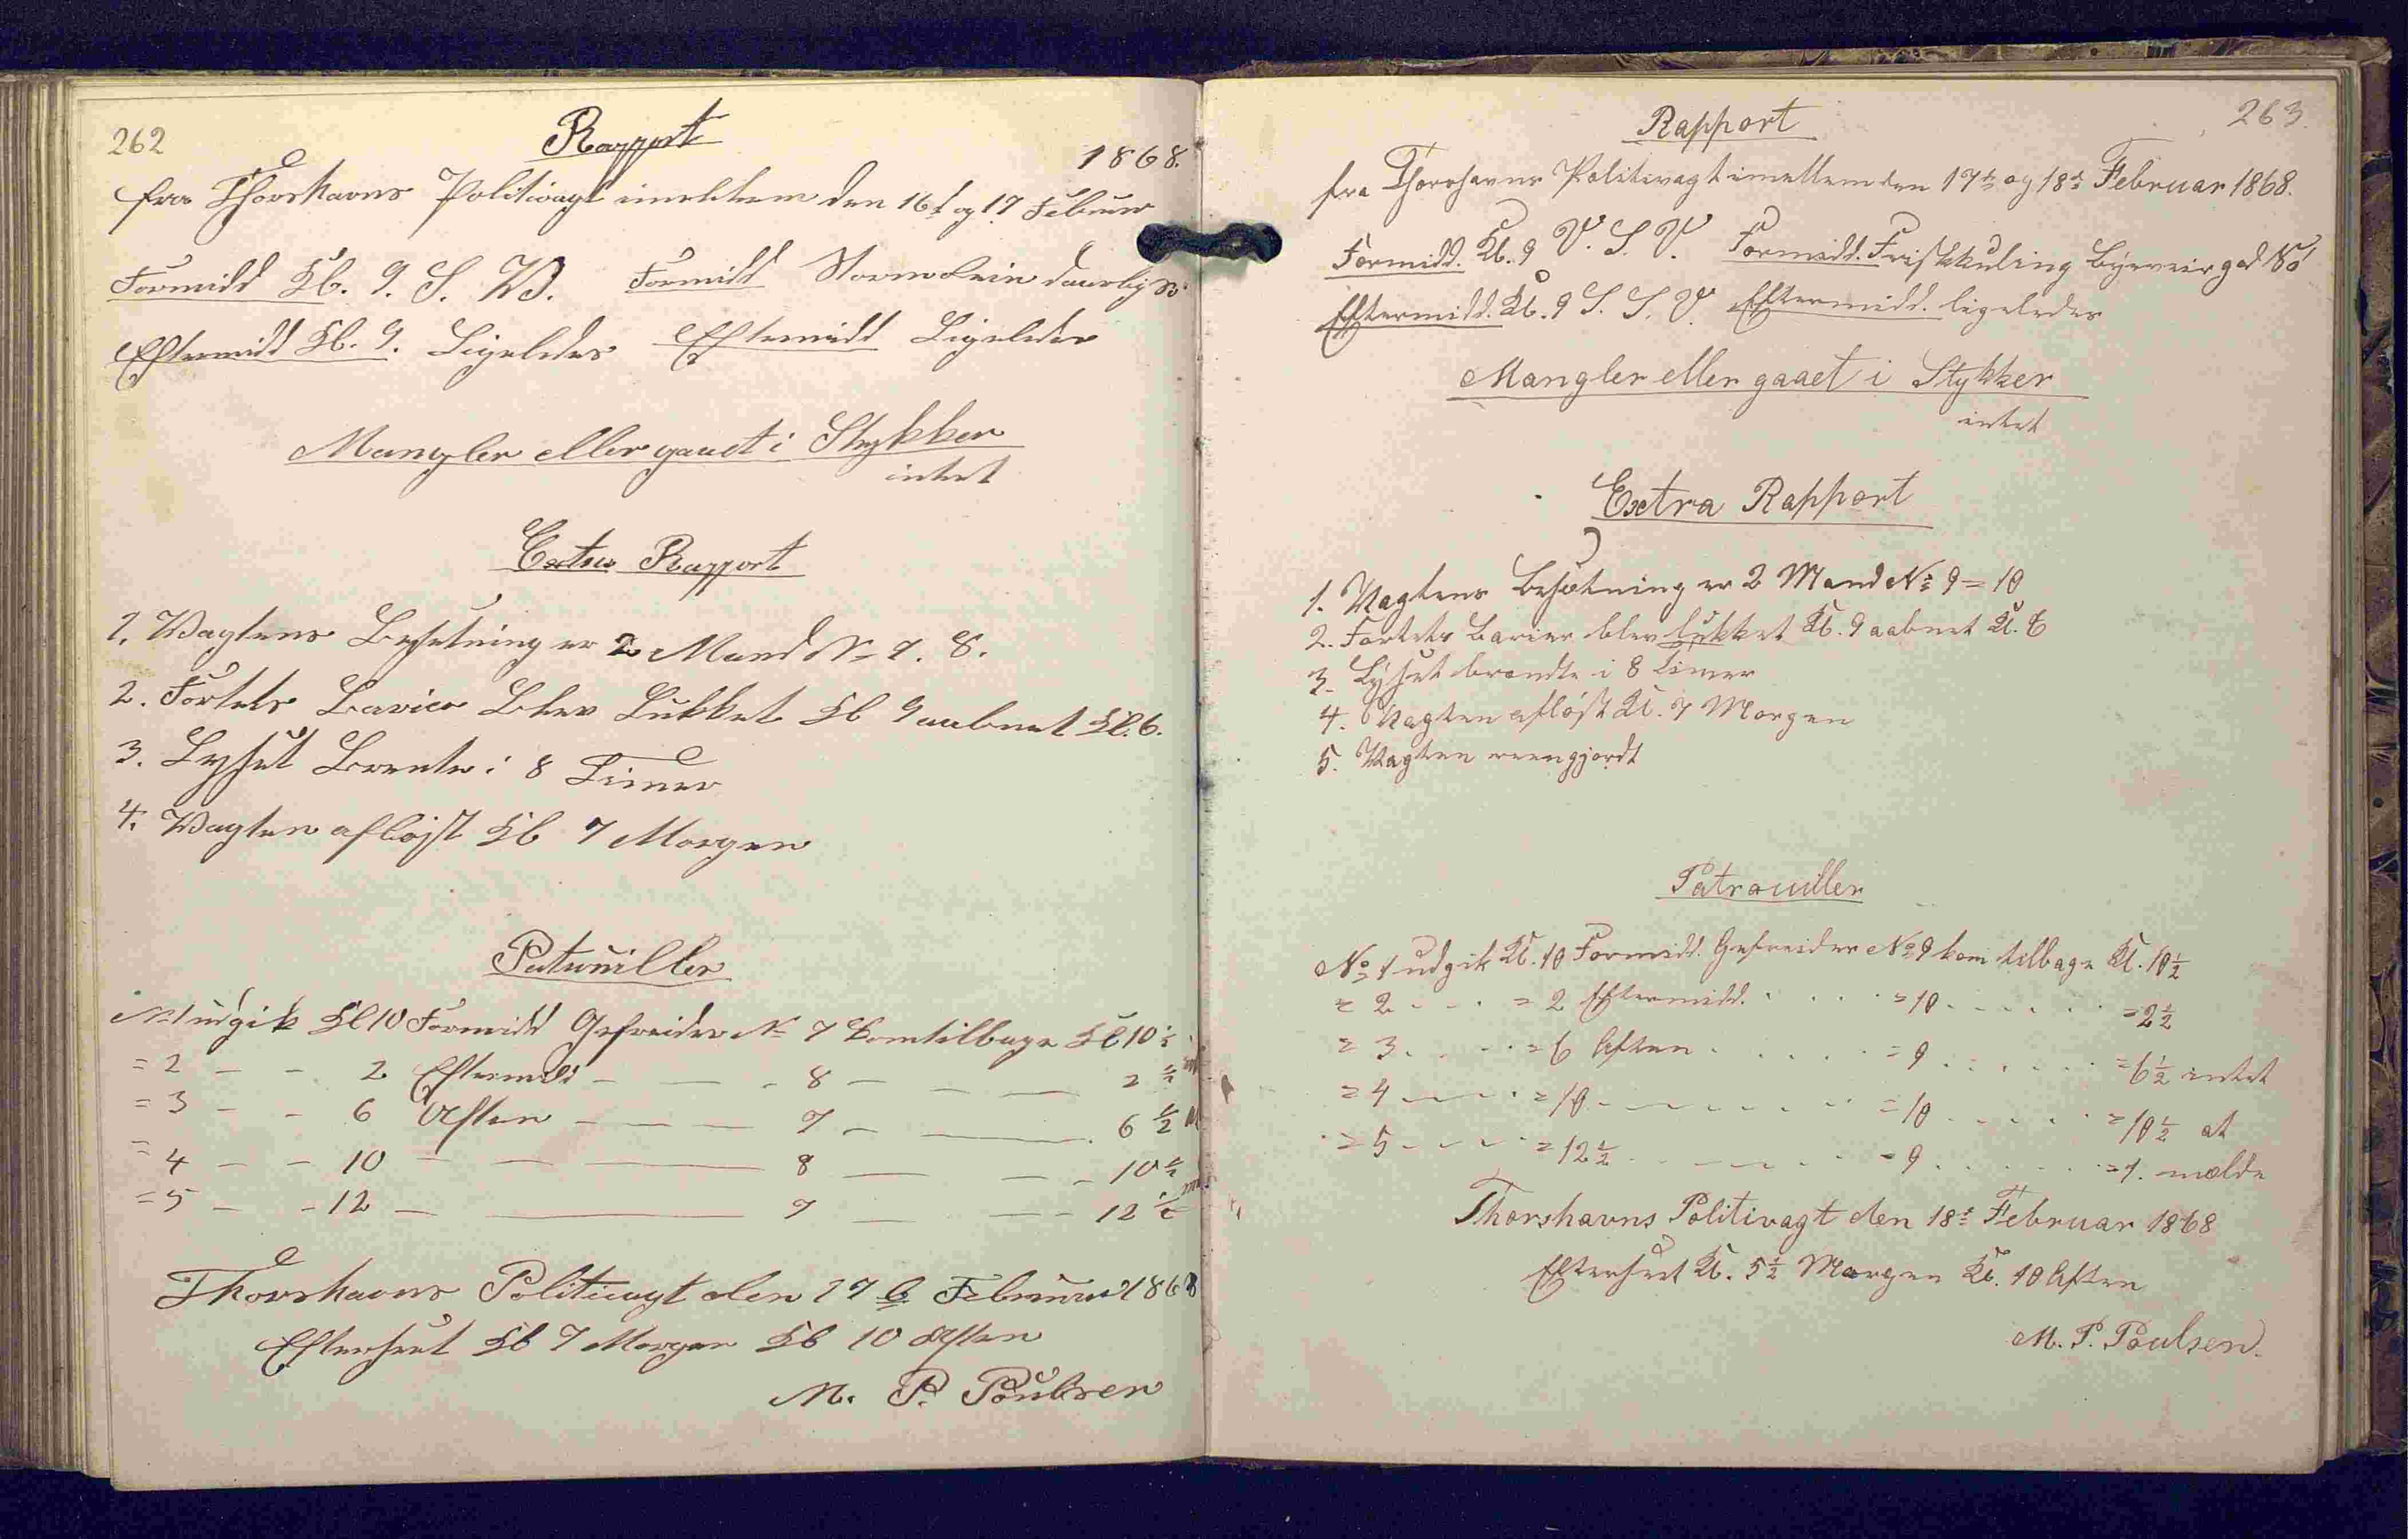 262
Rapport
1868.
fra Thorshavns Politivagt imellem den 16t og 17 Februar
Formidd Kl. 9. S. W. Formidd Storm
Eftermidd Kl. 9. Ligeledes Eftermidd Ligeledes
Mangler eller gaaet i Stykker
intet
Extra Rapport
1. Wagtens Besetning er 2 Mand No 7. 8.
2. Fortets Barier Blev Lukket Kl 9 aabnet Kl. 6.
3. Lyset Brente i 8 Timer
4. Wagten afløst Kl 7 Morgen
Patrouiller
No 1 udgik Kl 10 Formidd Gefreider No 7 kom tilbage Kl 10 ½
= 2 - - 2 Eftermidd - - - 8 - - - 2 ½
= 3 - - 6 Aften - - - 7 - - 6 ½
= 4 - - 10 - - - 8 - - - 10 ½
= 5 - - 12 - - 7 - - - 12 ½
Thorshavns Politivagt den 17 Februar 1868
Efterseet Kl 7 Morgen Kl 10 Aften
M. P. Poulsen
263.
Rapport
fra Thorshavns Politivagt imellem den 17de og 18de Februar 1868.
Formidd. Kl. 9 V. S. V. Formidd. Frisk kuling Byeveir god
Eftermidd. Kl. 9 S. S. V. Eftermidd. ligeledes
Mangler eller gaaet i Stykker
intet
Extra Rapport
1. Vagtens Besætning er 2 Mand No 9 = 10
2. Fortets Barier blev lukket Kl. 9 aabnet Kl. 6
3. Lyset brændte i 8 Timer
4. Vagten afløst Kl. 7 Morgen
5. Vagten reengjordt
Patrouiller
No 1 udgik Kl. 10 Formidd. Gefreider No 9 kom tilbage Kl. 10 ½
= 2 - - - = 2 Eftermidd. - - - = 10 - - - = 2 ½
= 3 - - - = 6 Aften - - - = 9 - - - = 6 ½ intet
= 4 - - - = 10 - - - = 10 - - - = 10 ½ at
= 5 - - - = 12 ½ - - - = 9 - - - = 1. melde
Thorshavns Politivagt den 18t Februar 1868
Efterseet Kl. 5 ½ Morgen Kl. 10 Aften
M. P. Poulsen.